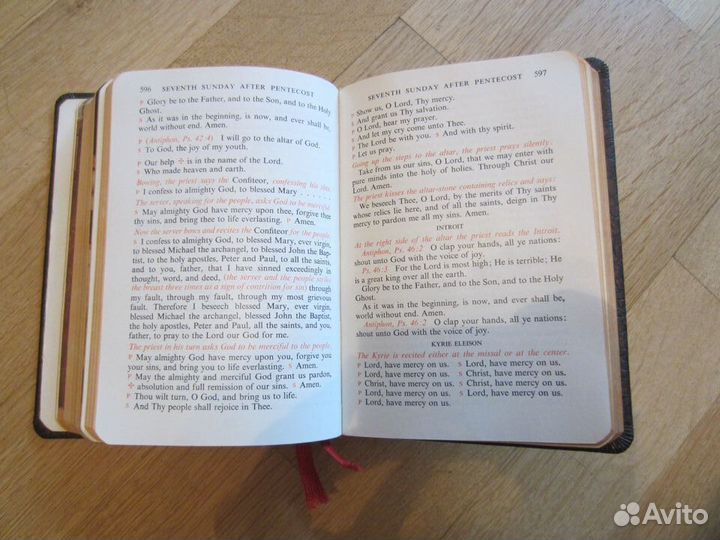 596 SEVENTH SUNDAY AFTER PENTECOST
P Glory be to the Father, and to the Son, and to the Holy
Ghost.
S As it was in the beginning, is now, and ever shall be,
world without end. Amen.
P (Antiphon, Ps. 42:4) I will go to the altar of God.
S To God, the joy of my youth.
P Our help ✠ is in the name of the Lord.
S Who made heaven and earth.
Bowing, the priest says the Confiteor, confessing his sins.
P I confess to almighty God, to blessed Mary . . . .
The server, speaking for the people, asks God to be merciful
S May almighty God have mercy upon thee, forgive thee
thy sins, and bring thee to life everlasting. P Amen.
Now the server bows and recites the Confiteor for the people.
S I confess to almighty God, to blessed Mary, ever virgin,
to blessed Michael the archangel, to blessed John the Bap-
tist, to the holy apostles, Peter and Paul, to all the saints,
and to you, father, that I have sinned exceedingly in
thought, word, and deed, (the server and the people strike
the breast three times as a sign of contrition for sin) through
my fault, through my fault, through my most grievous
fault. Therefore I beseech blessed Mary, ever virgin,
blessed Michael the archangel, blessed John the Baptist,
the holy apostles, Peter and Paul, all the saints, and you,
father, to pray to the Lord our God for me.
The priest in his turn asks God to be merciful to the people.
P May almighty God have mercy upon you, forgive you
your sins, and bring you to life everlasting. S Amen.
P May the almighty and merciful God grant us pardon,
✠ absolution and full remission of our sins. S Amen.
P Thou wilt turn, O God, and bring us to life.
S And Thy people shall rejoice in Thee.
SEVENTH SUNDAY AFTER PENTECOST 597
P Show us, O Lord, Thy mercy.
S And grant us Thy salvation.
P O Lord, hear my prayer.
S And let my cry come unto Thee.
P The Lord be with you. S And with thy spirit.
P Let us pray.
Going up the steps to the altar, the priest prays silently:
Take from us our sins, O Lord, that we may enter with
pure minds into the holy of holies. Through Christ our
Lord. Amen.
The priest kisses the altar-stone containing relics and says:
We beseech Thee, O Lord, by the merits of Thy saints
whose relics lie here, and of all the saints, deign in Thy
mercy to pardon me all my sins. Amen.
INTROIT
At the right side of the altar the priest reads the Introit.
Antiphon, Ps. 46:2 O clap your hands, all ye nations:
shout unto God with the voice of joy.
Ps. 46:3 For the Lord is most high; He is terrible; He
is a great king over all the earth.
Glory be to the Father, and to the Son, and to the Holy
Ghost.
As it was in the beginning, is now, and ever shall be,
world without end. Amen.
Antiphon, Ps. 46:2 O clap your hands, all ye nations:
shout unto God with the voice of joy.
KYRIE ELEISON
The Kyrie is recited either at the missal or at the center.
P Lord, have mercy on us. S Lord, have mercy on us.
P Lord, have mercy on us. S Christ, have mercy on us.
P Christ, have mercy on us. S Christ, have mercy on us.
P Lord, have mercy on us. S Lord, have mercy on us.
P Lord, have mercy on us.
Avito